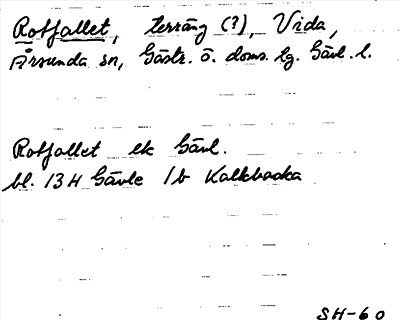 Rotfallet, terräng (?), Vida,
Årsunda sn, Gästr. ö. doms. lg. Gävl. l.
Rotfallet ek Gävl.
bl. 13 H Gävle 1b Kalkbacka
SH-60